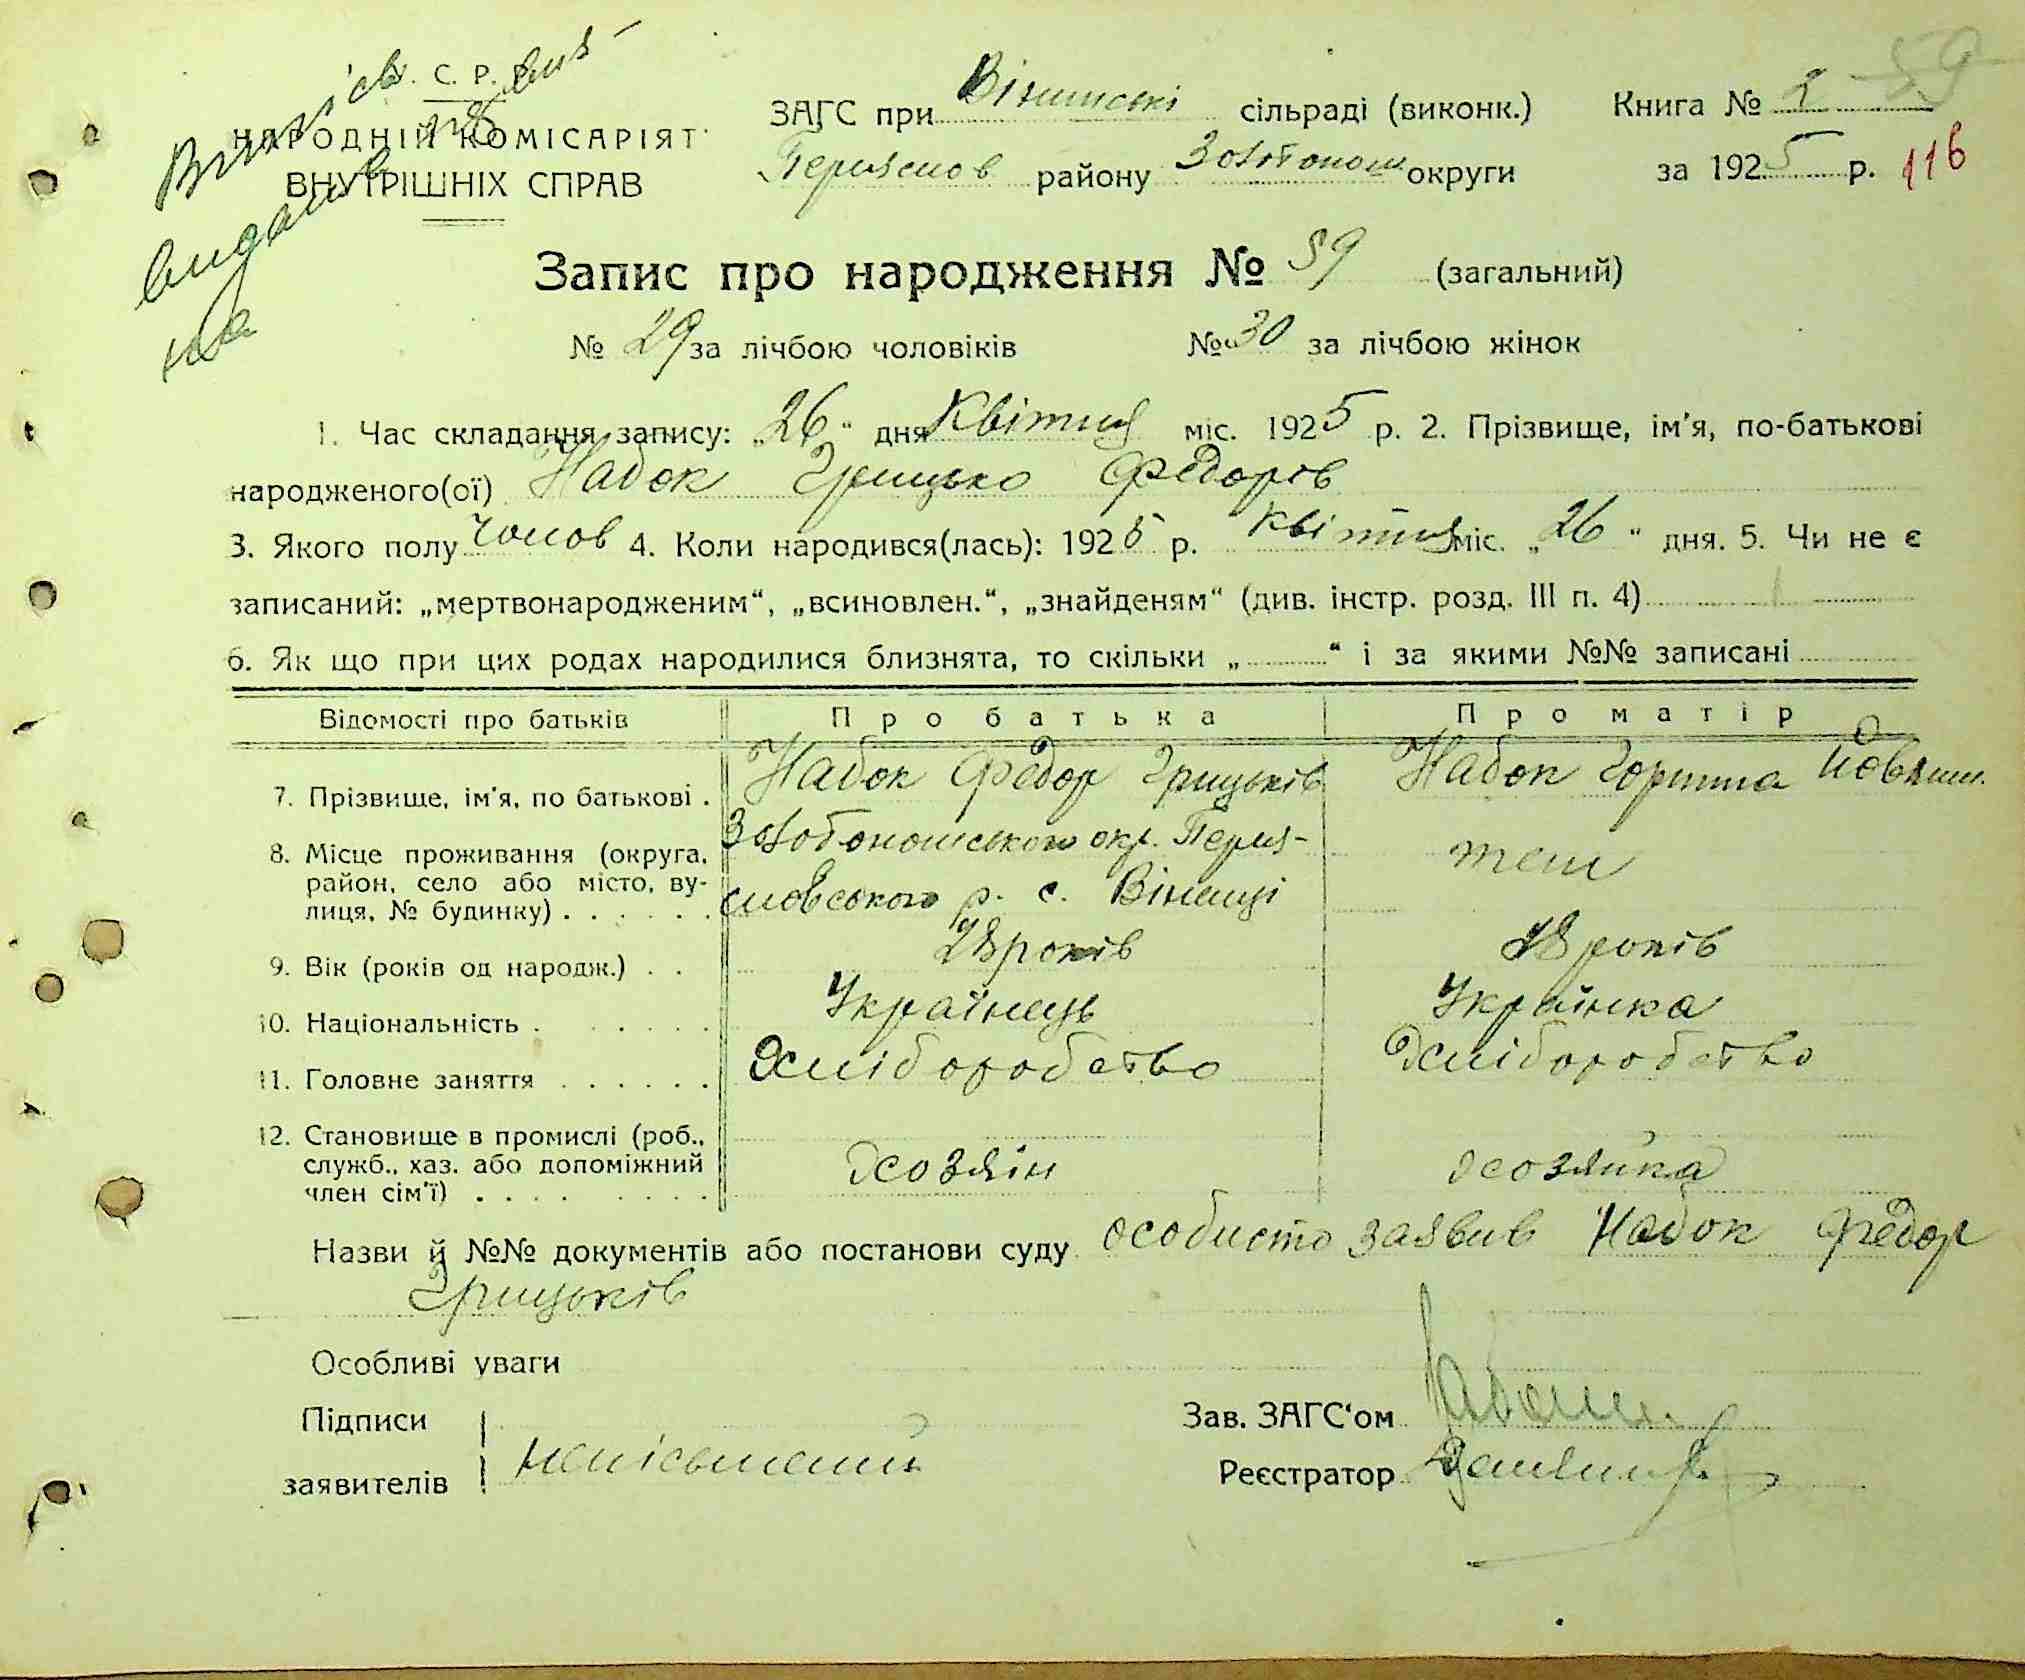 С. Р. Р.
НАРОДНІЙ КОМІСАРІЯТ
ВНУТРІШНІХ СПРАВ
видано
на
59
ЗАГС при сільраді (виконк.) Книга № 2
Переяслов району Золотонош округи за 1925 р. 116
Запис про народження № 59 (загальний)
№ 29 за лічбою чоловіків № 30 за лічбою жінок
1. Час складання запису: „26" дня Квітня міс. 1925 р. 2. Прізвище, ім'я, по-батькові
народженого(ої) Набок Грицько Федорів
3. Якого полу чолов 4. Коли народився(лась): 1925 р. квітня міс. „26" дня. 5. Чи не є
записаний: „мертвонародженим", „всиновлен.", „знайденям" (див. інстр. розд. III п. 4)
6. Як що при цих родах народилися близнята, то скільки „ " і за якими №№ записані
Відомості про батьків Про батька Про матір
7. Прізвище, ім'я, по батькові . Набок Федор Грицьків Набок
8. Місце проживання (округа, район, село або місто, вулиця, № будинку) . . . . . . Золотоношського окр. Переясловського р. с. Вінинці теш
9. Вік (років од народж.) . . 28 років 28 років
10. Національність . . . . . . . Українець Українка
11. Головне заняття . . . . . . Хліборобство Хліборобство
12. Становище в промислі (роб., служб., хаз. або допоміжний член сім'ї) . . . . . . . . Хозяїн хозяйка
Назви й №№ документів або постанови суду особисто заявив Набок Федор
Грицьків
Особливі уваги
Підписи Зав. ЗАГС'ом
заявителів неписьмений Реєстратор